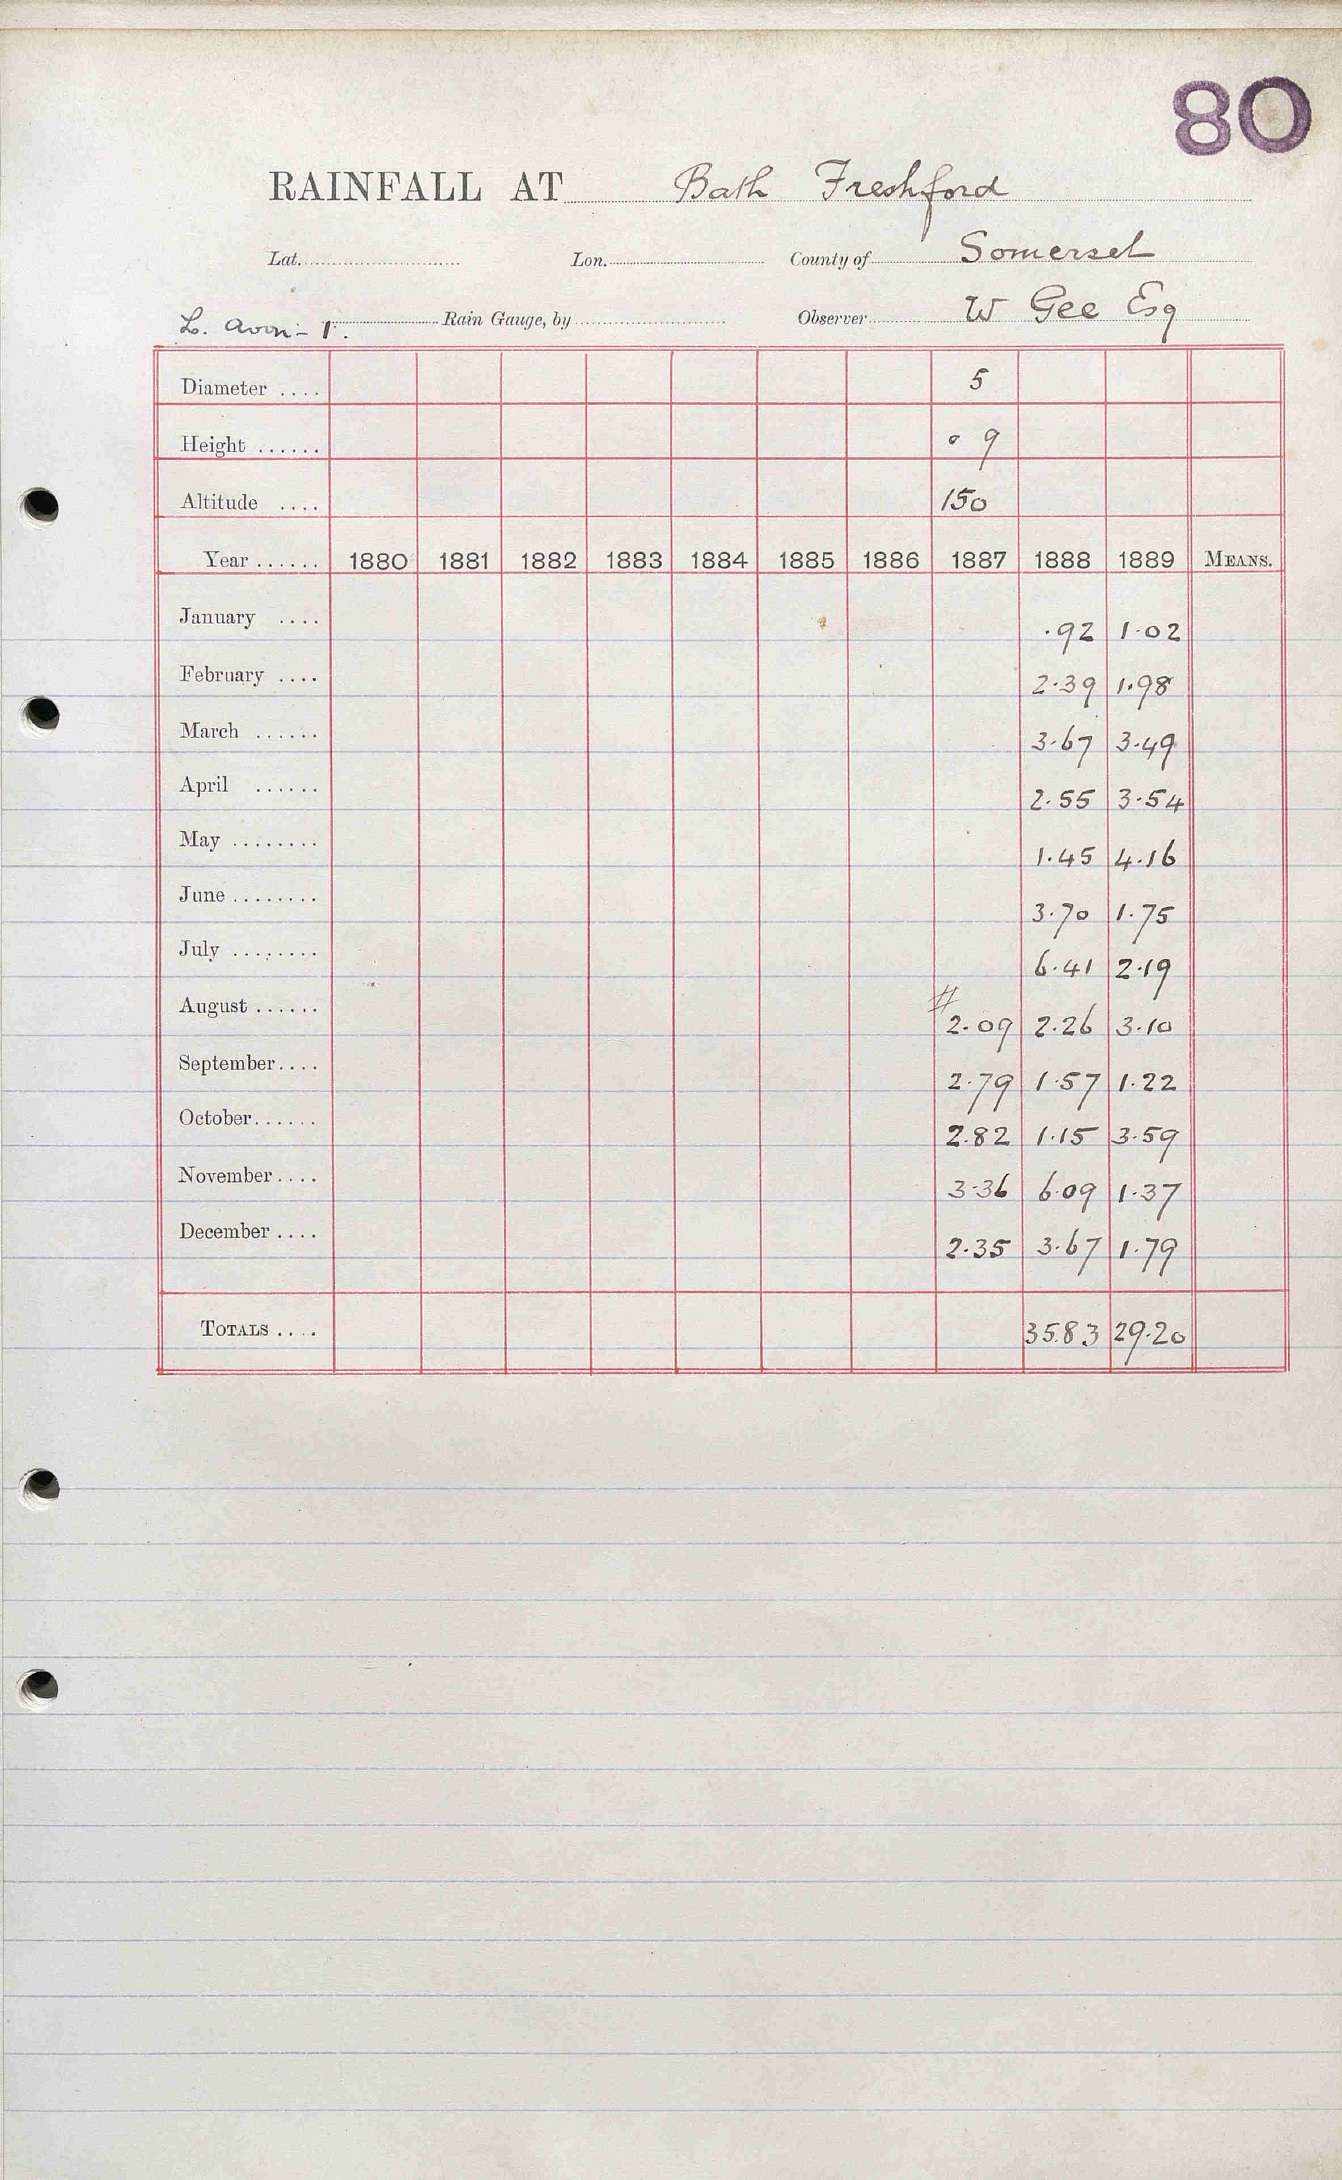 80
RAINFALL AT Bath Freshford
Lat. Lon. County of Somerset
L. Avon - 1. Rain Gauge, by Observer W Gee Esq
Diameter .... 5
Height ...... 0 9
Altitude .... 150
Year ...... 1880 1881 1882 1883 1884 1885 1886 1887 1888 1889 MEANS.
January .... .92 1.02
February .... 2.39 1.98
March ...... 3.67 3.49
April ...... 2.55 3.54
May ........ 1.45 4.16
June ........ 3.70 1.75
July ........ 6.41 2.19
August ...... # 2.09 2.26 3.10
September .... 2.79 1.57 1.22
October ...... 2.82 1.15 3.59
November .... 3.36 6.09 1.37
December .... 2.35 3.67 1.79
TOTALS .... 35.83 29.20